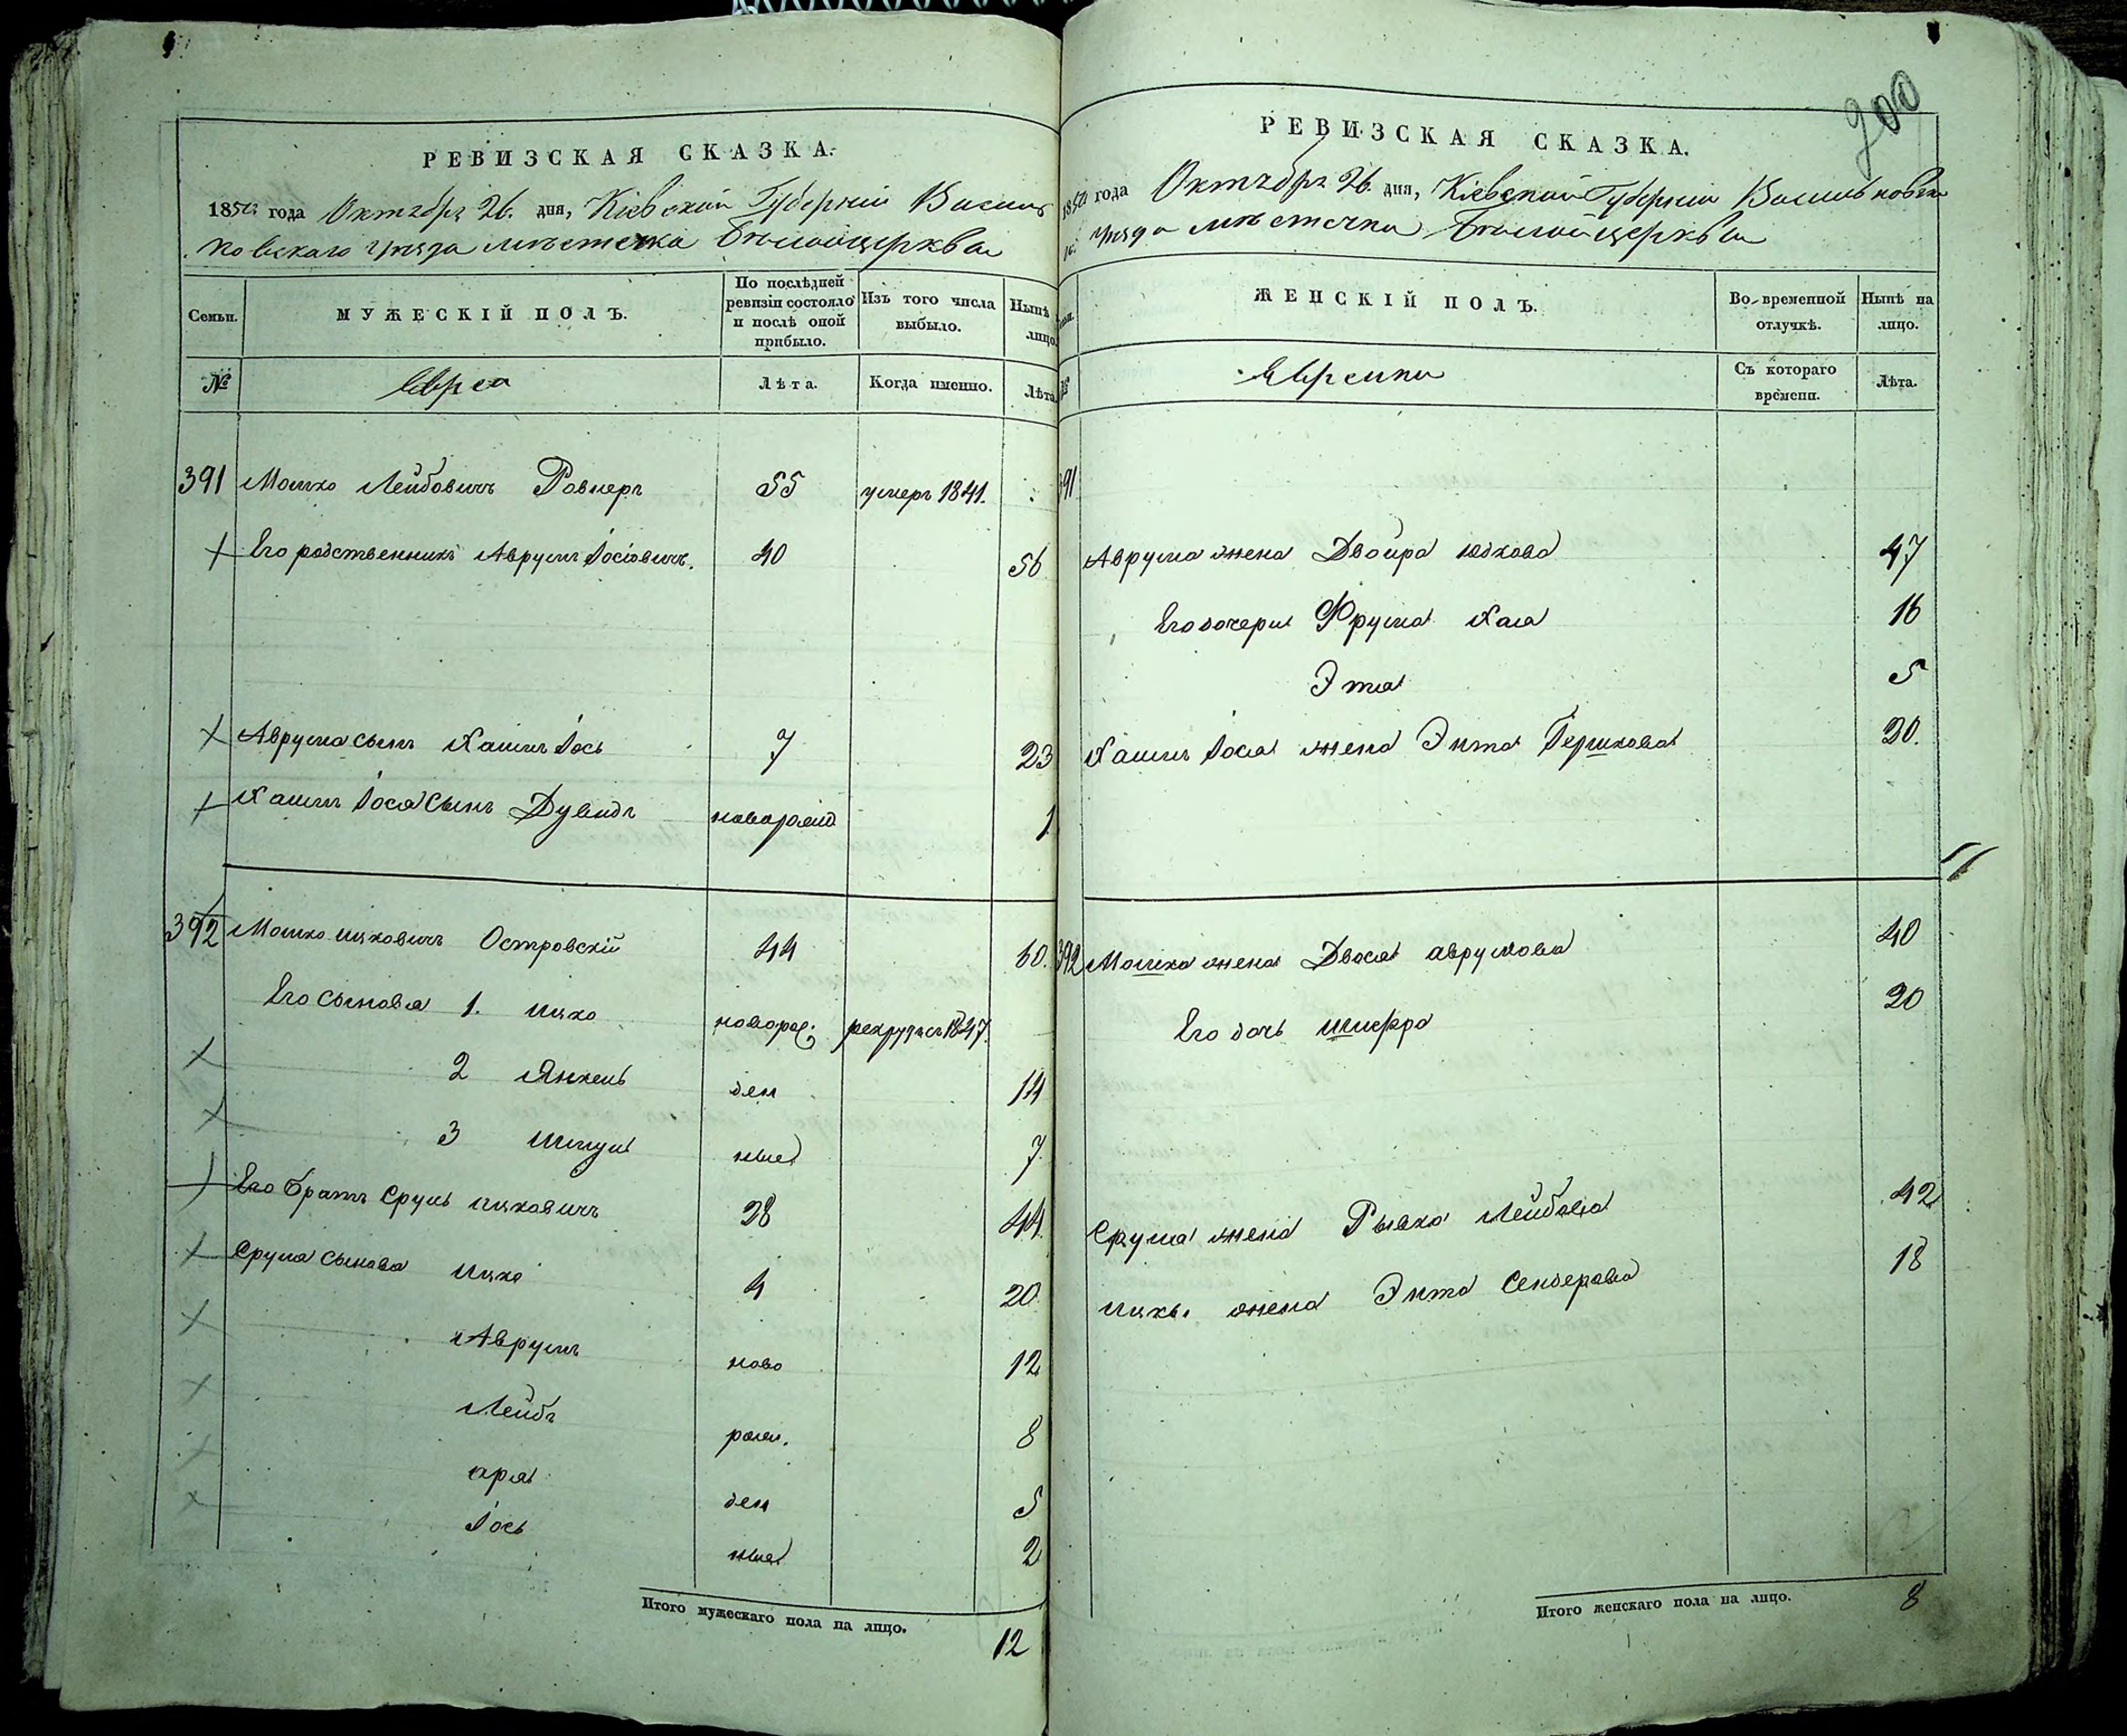 РЕВИЗСКАЯ СКАЗКА.
1850 года Октября 26. дня, Кіевской Губерніи Василь
ковскаго уѣзда мѣстечка Бѣлойцеркви
Семьи.
МУЖЕСКІЙ ПОЛЪ.
По послѣдней ревизіи состояло и послѣ оной прибыло.
Изъ того числа выбыло.
Нынѣ лицо.
№
Евреи
Лѣта.
Когда именно.
Лѣта
391 Мошко Лейбовичъ Ровнеръ 55 умеръ 1841.
Его родственникъ Аврумъ Іосіовичъ. 40 56
Аврума сынъ Хаимъ Іось 7 23
Хаимъ Іося сынъ Дувидъ новорожд 1
392 Мошко Ицковичъ Островскій 44 60.
Его сыновья 1. Ицко новорож. рекрутъ съ 1847.
2 Янкель ден 14
3 Шмуль ные 7
Его братъ Сруль Ицковичъ 28 44
Сруля сыновья Ицко 4 20
Аврумъ ново 12
Лейбъ рож. 8
Арія ден 5
Іось ные 2
Итого мужескаго пола на лицо. 12
200
РЕВИЗСКАЯ СКАЗКА.
1850 года Октября 26. дня, Кіевской Губерніи Васильковска
го уѣзда мѣстечка Бѣлойцеркви
ЖЕНСКІЙ ПОЛЪ.
Во временной отлучкѣ.
Нынѣ на лицо.
№
Еврейки
Съ котораго времени.
Лѣта.
391
Аврума жена Двойра Юдкова 47
Его дочери Фрума Хая 16
Этя 5
Хаимъ Іося жена Энта Гершкова 20.
392 Мошка жена Двося Аврумова 40
Его дочь Шифра 20
Сруля жена Рывка Лейбова 42
Ицки жена Энта Сендерова 18
Итого женскаго пола на лицо. 8